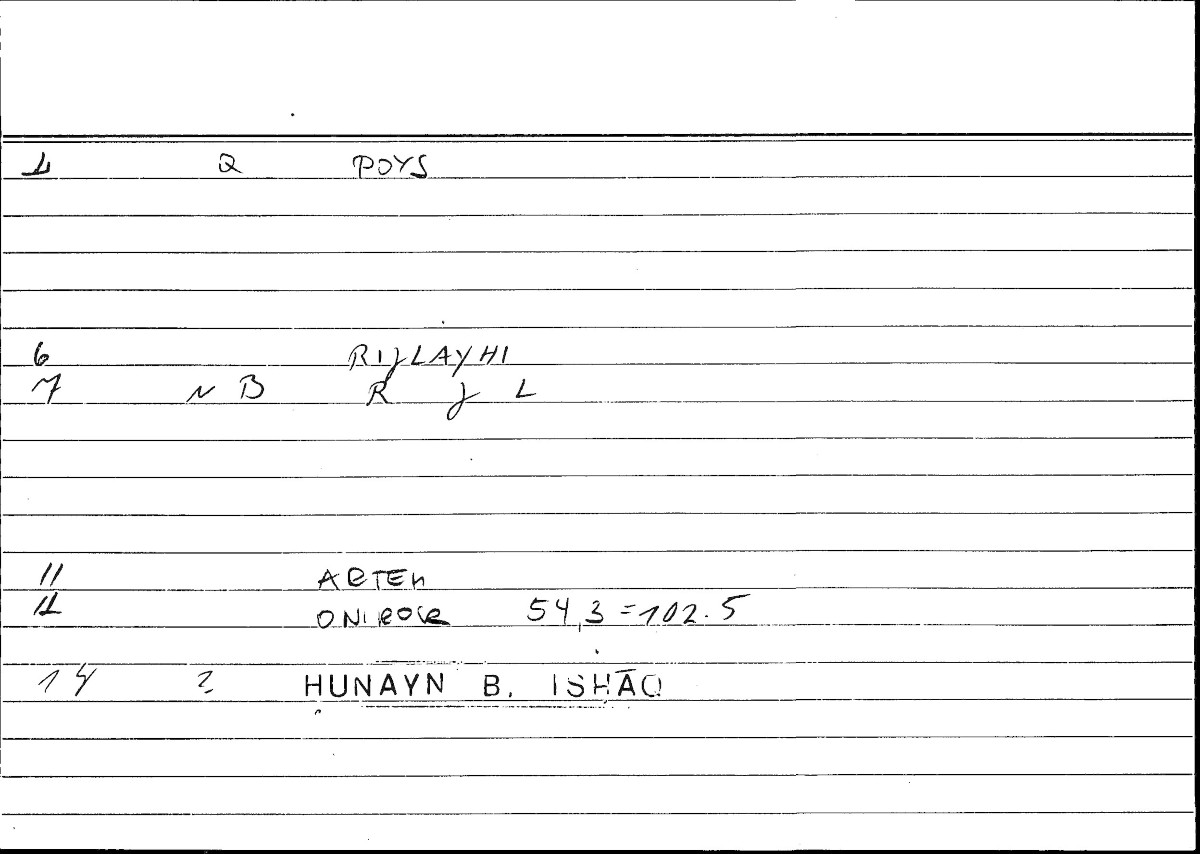 1 Q POYS
6 RIJLAYHI
7 N B R J L
11 ARTEM
12 ONIROCR 54,3=102.5
14 2 ḤUNAYN B. ISḤĀQ